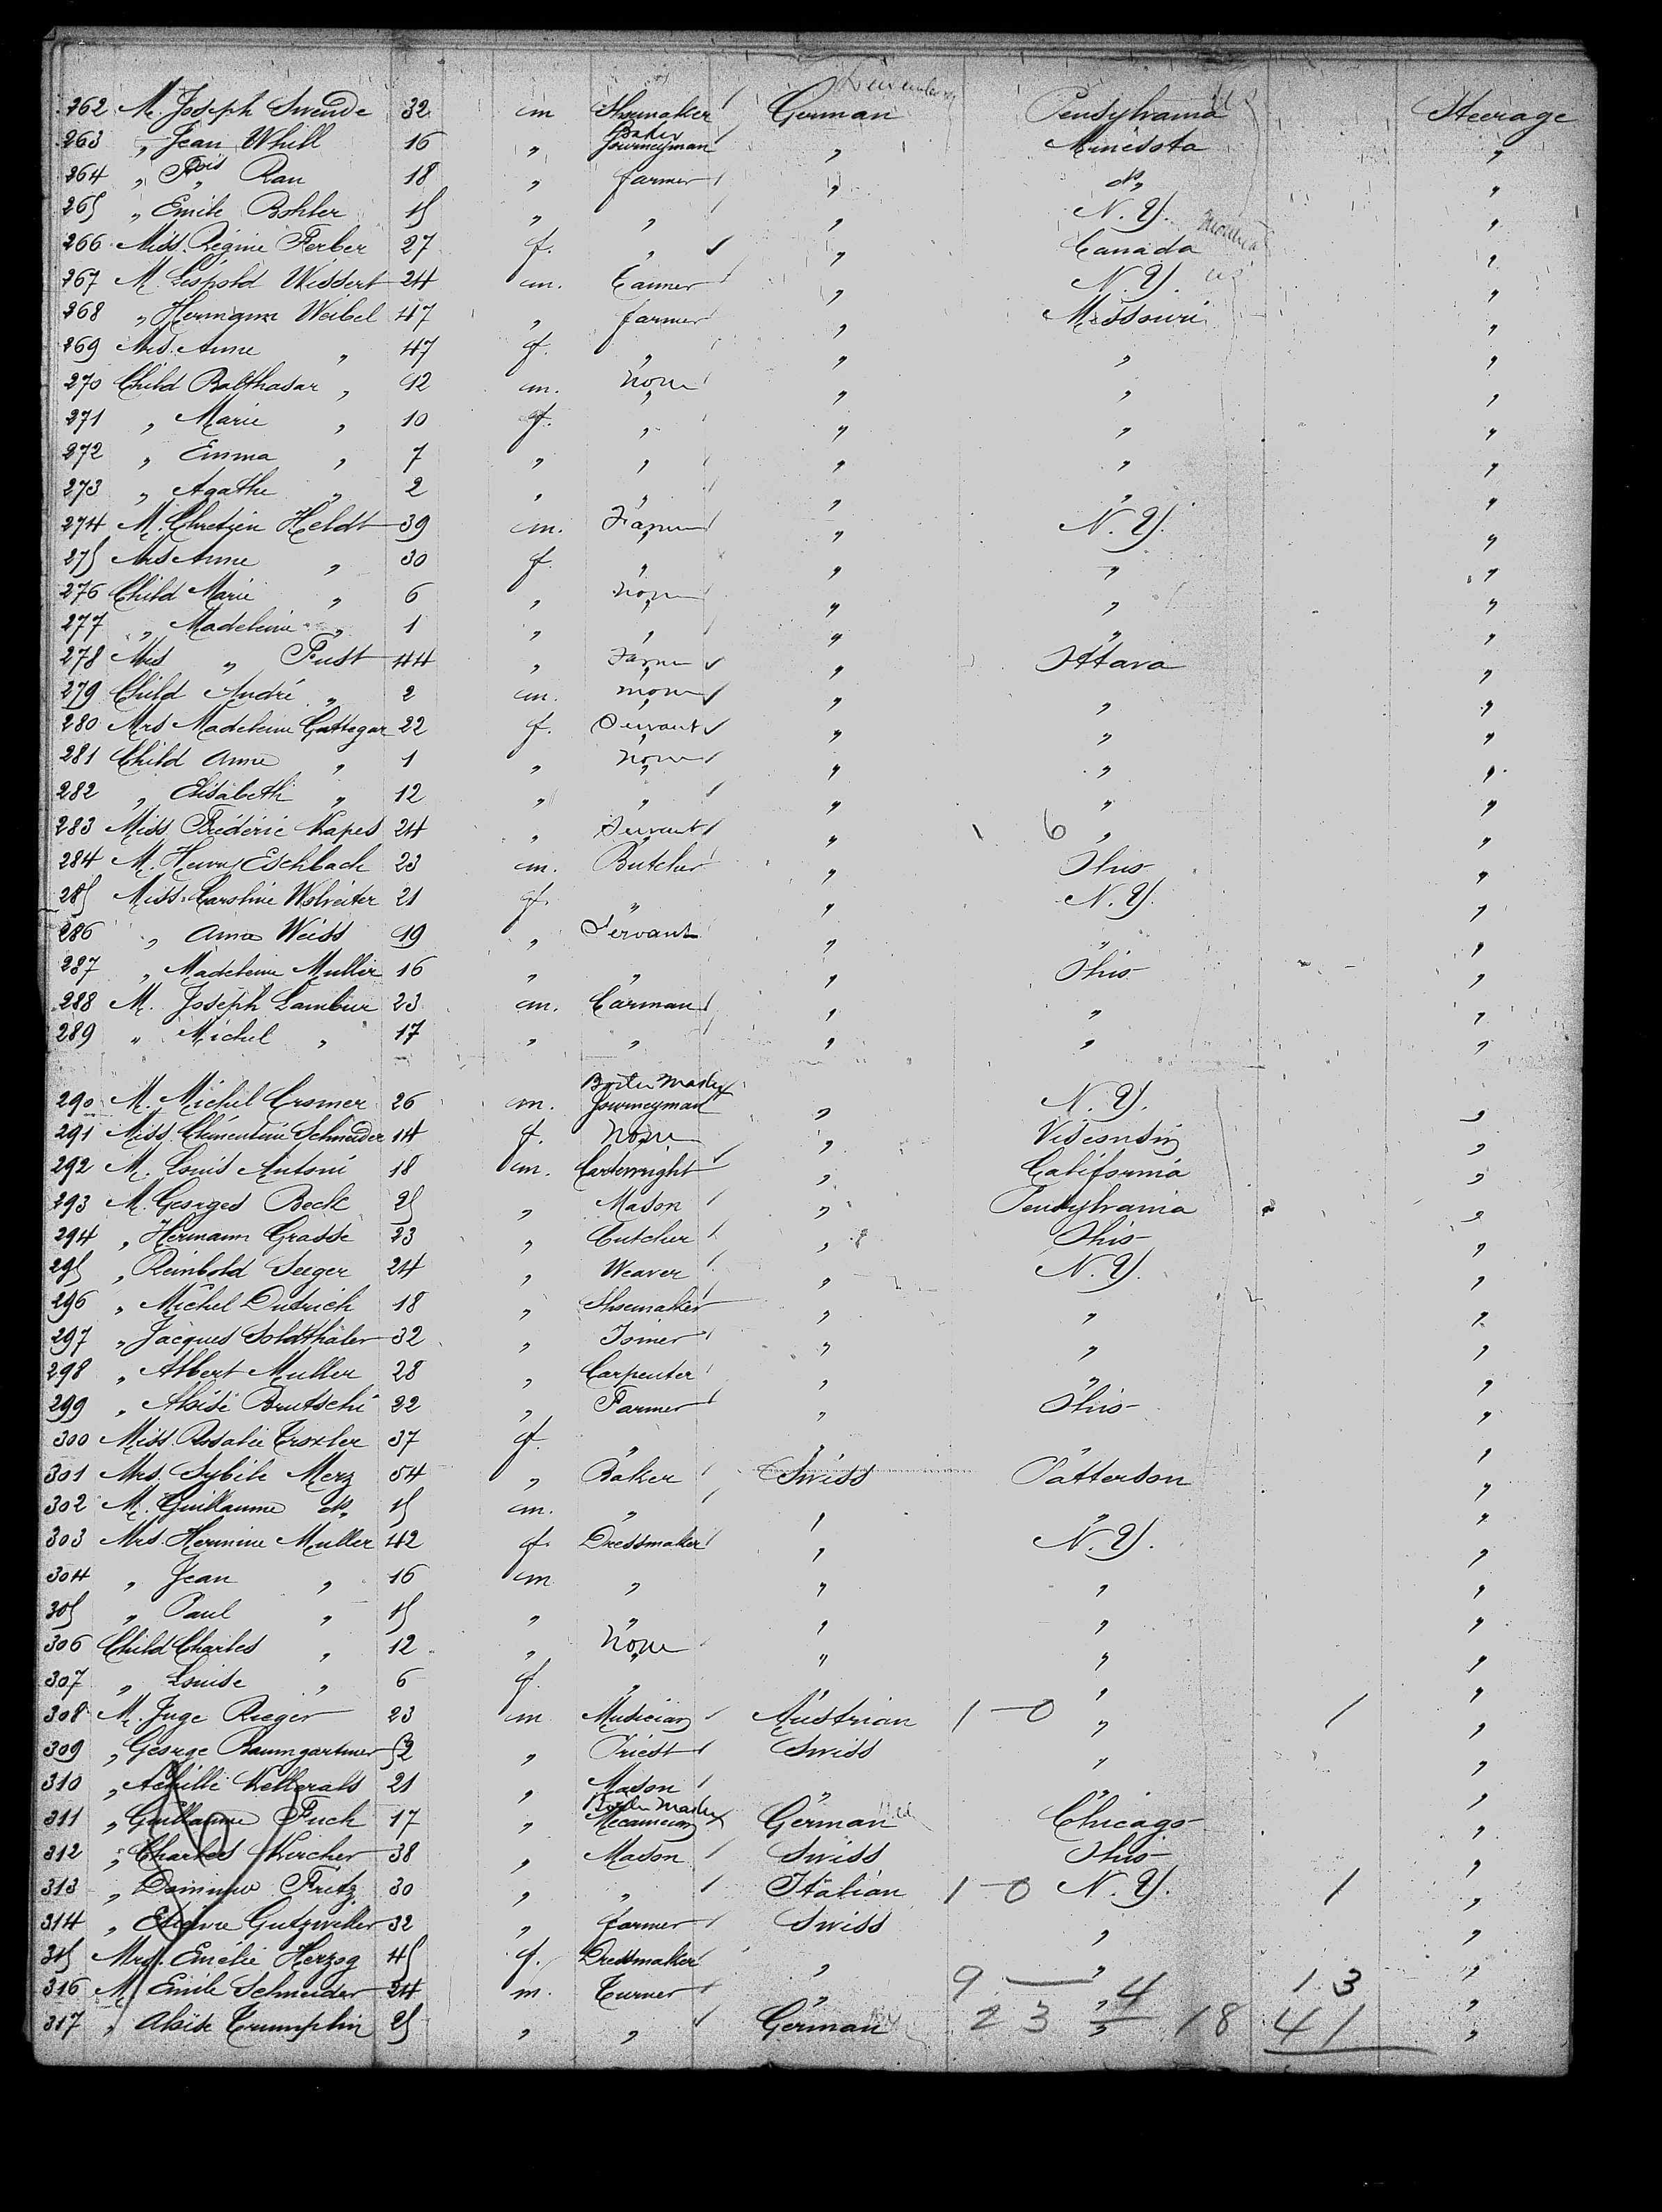 262 M. Joseph Swende 32 m Shoemaker German Pensylvania Steerage
263 " Jean Whill 16 " Baker Journeyman " Minesota "
264 " Fois Rau 18 " farmer " do "
265 " Emile Bohler 15 " " " N. Y. "
266 Miss. Régine Ferber 27 f. " " Canada "
267 M. Léopold Wissert 24 m. Tanner " N. Y. "
268 " Hermann Weibel 47 " farmer " Missouri "
269 Mrs. Anne " 47 f. " " " "
270 Child Balthasar " 12 m. none " " "
271 " Marie " 10 f. " " " "
272 " Emma " 7 " " " " "
273 " Agathe " 2 " " " " "
274 M. Chretien Heldt 39 m. Farmer " N. Y. "
275 Mrs Anne " 30 f. " " " "
276 Child Marie " 6 " none " " "
277 " Madeleine " 1 " " " " "
278 Mrs " Fust 44 " Farmer " Ottava "
279 Child André " 2 m. none " " "
280 Mrs Madeleine Gattegar 22 f. Servant " " "
281 Child Anne " 1 " none " " "
282 " Elisabeth " 12 " " " " "
283 Miss. Frédéric Kapes 24 " Servant " 6 " "
284 M. Henry Eschbach 23 m. Butcher " Ohio "
285 Miss. Caroline Wolreiter 21 f. " " N. Y. "
286 " Anna Weiss 19 " Servant " " "
287 " Madeleine Muller 16 " " " Ohio "
288 M. Joseph Lambur 23 m. Carman " " "
289 " Michel " 17 " " " " "
290 M. Michel Cromer 26 m. Boiler Maker Journeyman " N. Y. "
291 Miss. Clémentine Schneider 14 f. None " Visconsin "
292 M. Louis Antoni 18 m. Cartwright " California "
293 M. Georges Beck 25 " Mason " Pensylvania "
294 " Hermann Grasse 23 " Cutcher " Ohio "
295 " Reinbold Seeger 24 " Weaver " N. Y. "
296 " Michel Dutrich 18 " Shoemaker " " "
297 " Jacques Soldthaler 32 " Joiner " " "
298 " Albert Muller 28 " Carpenter " " "
299 " Aloise Brutschi 22 " Farmer " Ohio "
300 Miss. Rosalie Troxler 37 f. " " " "
301 Mrs. Sybile Merz 54 " Baker Swiss Patterson "
302 M. Guillaume do 15 m. " " " "
303 Mrs. Hermine Muller 42 f. Dressmaker " N. Y. "
304 " Jean " 16 m " " " "
305 " Paul " 15 " " " " "
306 Child Charles " 12 " None " " "
307 " Louise " 6 f. " " " "
308 M. Juge Rieger 23 m Musician Austrian 1-0 " 1 "
309 " George Baumgartner 52 " Priest Swiss " "
310 " Achille Kellerals 21 " Mason " " "
311 " Guillaume Fuch 17 " Boiler Maker Mecanician German Chicago "
312 " Charles Kircher 38 " Mason Swiss Ohio "
313 " Fritz 30 " " Italian 1-0 N. Y. 1 "
314 " Gutzwiller 32 " farmer Swiss " "
315 Mrs. Emélie Herzog 45 f. Dressmaker " " "
316 M. Emile Schneider 24 m. Turner " 9 — 4 " 13 "
317 " Aloise Trumphin 25 " " German 23 — 18 " 41 "